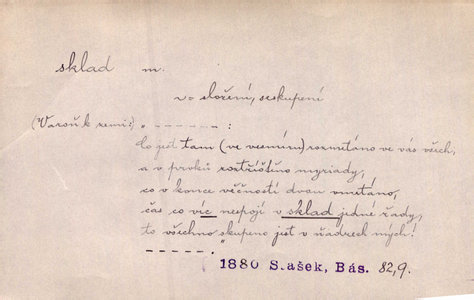 sklad m.
v= složení, seskupení
(Varoň k zemi:) „ - - - - - - :
Co jest tam (ve vesmíru) rozmetáno ve vás všech,
a v prvků roztříštěno myriady,
co v konce věčností dvou vmetáno,
čas co víc nespojí v sklad jedné řady,
to všechno skupeno jest v ňadrech mých!
- - - - - "
1880 Stašek, Bás. 82,9.